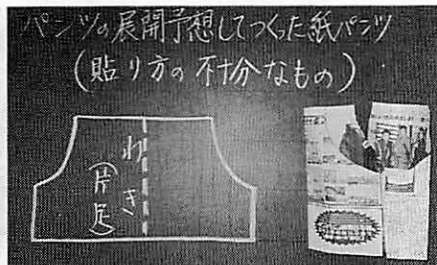 パンツの展開予想してつくった紙パンツ
(貼り方の不十分なもの)
わき
(片足)